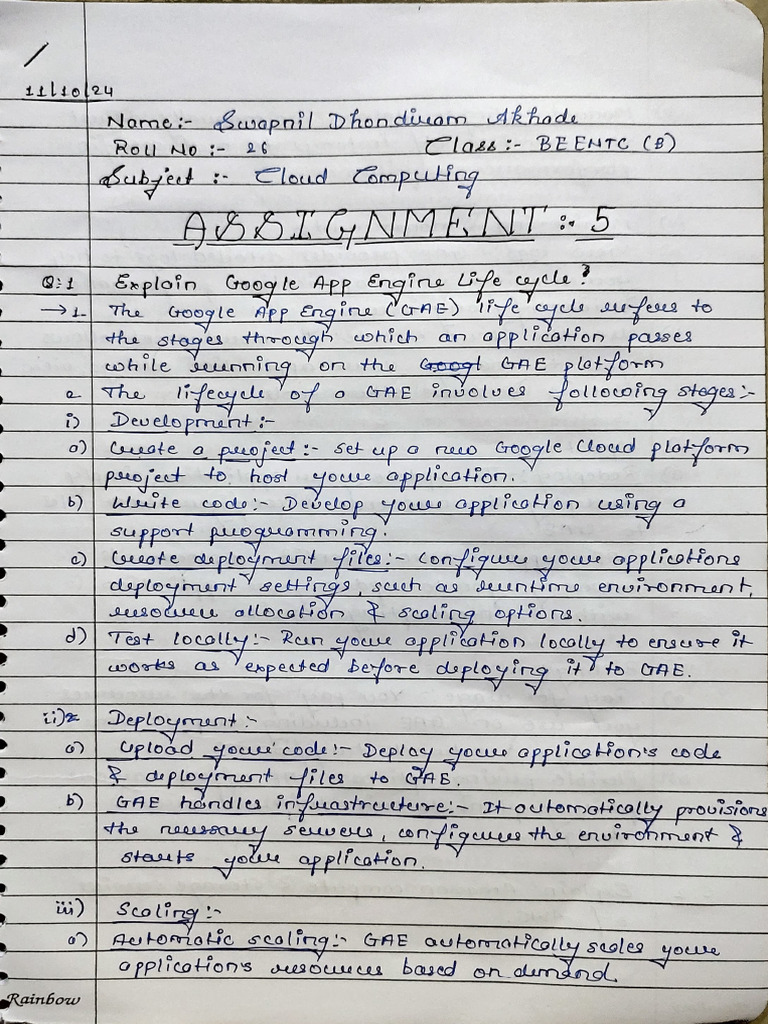 11/10/24
Name:- Swapnil Dhondiram Akhade
Roll No :- 26 Class:- BEENTC (B)
Subject :- Cloud Computing
ASSIGNMENT :- 5
Q:1 Explain Google App Engine Life cycle?
→ 1. The Google App Engine (GAE) life cycle refers to
the stages through which an application passes
while running on the Googl GAE platform
2 The lifecycle of a GAE involves following stages:-
i) Development:-
a) Create a project:- Set up a new Google Cloud platform
project to host your application.
b) Write code:- Develop your application using a
support programming.
c) Create deployment files:- Configure your applications
deployment settings, such as runtime environment,
resource allocation & scaling options.
d) Test locally:- Run your application locally to ensure it
works as expected before deploying it to GAE.
ii) Deployment:-
a) Upload your code:- Deploy your application's code
& deployment files to GAE.
b) GAE handles infrastructure:- It automatically provisions
the necessary servers, configures the environment &
starts your application.
iii) Scaling:-
a) Automatic scaling:- GAE automatically scales your
application's resources based on demand.
Rainbow